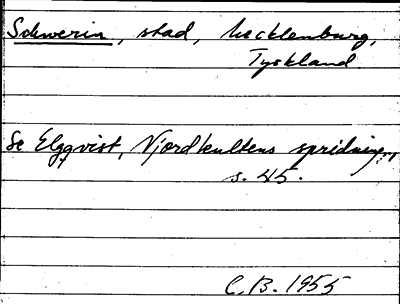 Schwerin, stad, Mecklenburg,
Tyskland
Se Elgqvist, Njordkultens spridning,
s. 45.
C.B. 1955